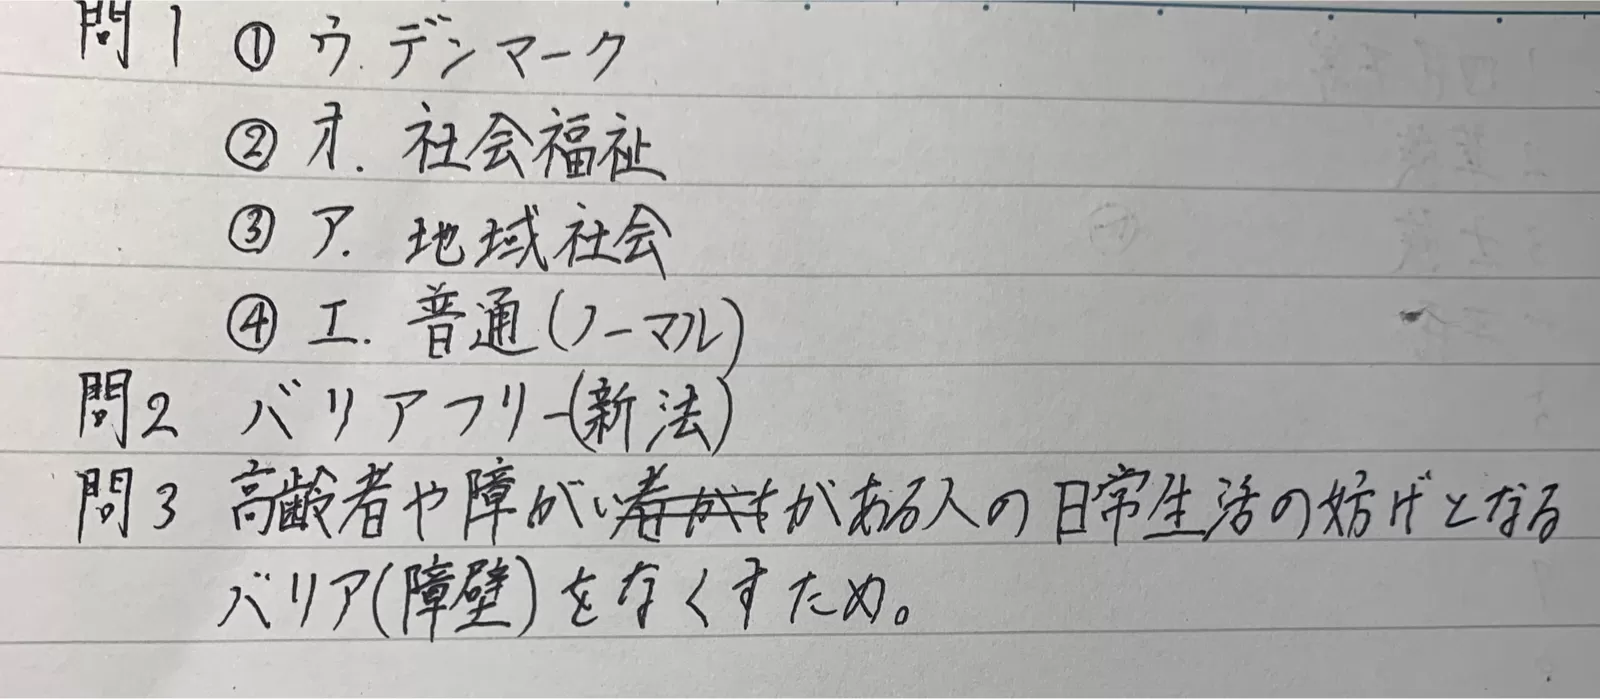 問1 ① ウ. デンマーク
② オ. 社会福祉
③ ア. 地域社会
④ エ. 普通(ノーマル)
問2 バリアフリー(新法)
問3 高齢者や障がいがある人の日常生活の妨げとなる
バリア(障壁)をなくすため。